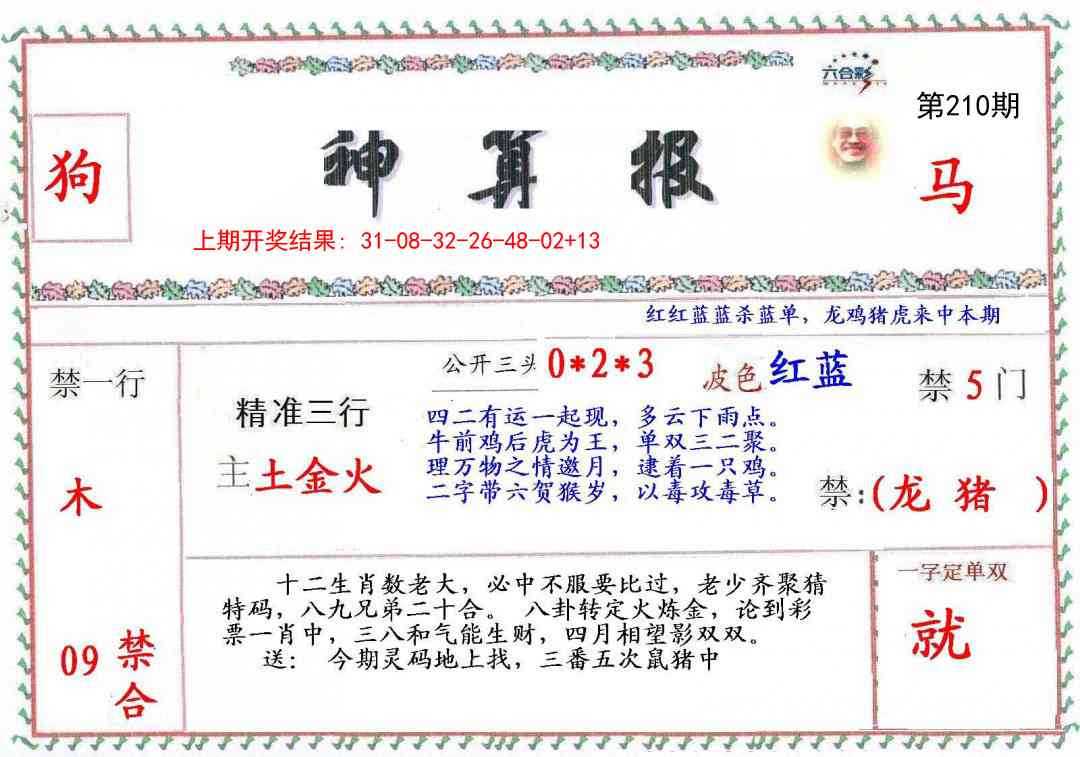 六合彩
第210期
狗
神算报
马
上期开奖结果: 31-08-32-26-48-02+13
红红蓝蓝杀蓝单，龙鸡猪虎来中本期
禁一行
公开三头 0*2*3
波色 红蓝
禁 5 门
精准三行
四二有运一起现，多云下雨点。
牛前鸡后虎为王，单双三二聚。
理万物之情邀月，逮着一只鸡。
二字带六贺猴岁，以毒攻毒草。
主 土金火
木
禁:(龙 猪 )
十二生肖数老大，必中不服要比过，老少齐聚猜
特码，八九兄弟二十合。 八卦转定火炼金，论到彩
票一肖中，三八和气能生财，四月相望影双双。
送: 今期灵码地上找，三番五次鼠猪中
一字定单双
就
09 禁
合